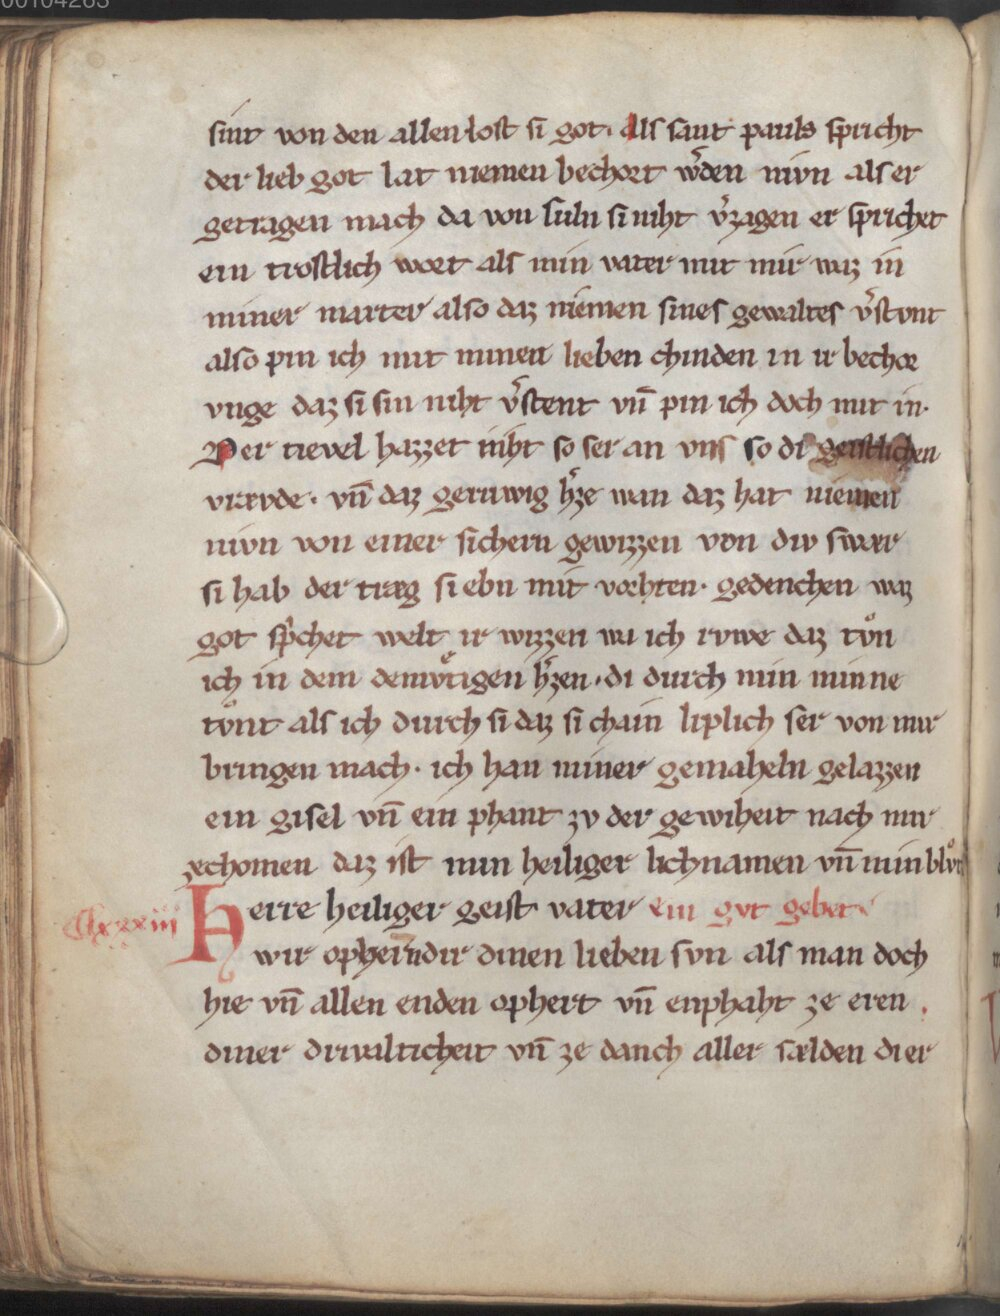 00104263
sint von den allen lost si got. Als sant pauls spricht
der lieb got lat niemen bechort w̓den nivn als er
getragen mach da von suln si niht v̓zagen er sprichet
ein trostlich wort als min vater mit mir waz in
miner marter also daz niemen sines gewaltes v̓stvnt
also pin ich mit minen lieben chinden in ir bechor
vnge daz si sin niht v̓stent vn̄ pin ich doch mit in.
Der tievel hazzet niht so ser an vns so di geistlichen
vraevde. vn̄ daz geruwig h̓ze wan daz hat niemen
nivn von einer sichern gewizzen von div swaer
si hab der traeg si ebn mit vorhten. gedenchen waz
got sp̓chet welt ir wizzen wa ich rvwe daz tvͦn
ich in dem demvͤtigen h̓zen. di durch min minne
tvͦnt als ich durch si daz si chain liplich ser von mir
bringen mach. ich han miner gemaheln gelazzen
ein gisel vn̄ ein phant zv der gewiheit nach mir
zechomen daz ist min heiliger lichnamen vn̄ min blvͦt
Herre heiliger geist vater ein gvt gebet
Clxxxiii
wir ophern dir dinen lieben svn als man doch
hie vn̄ allen enden ophert vn̄ enphaht ze eren
diner drivalticheit vn̄ ze danch aller saelden di er